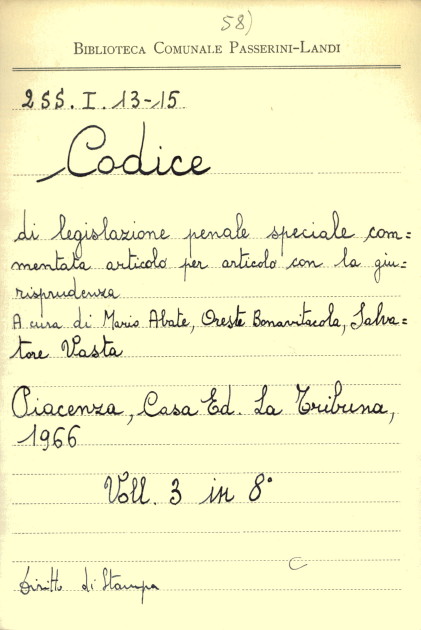 58)
BIBLIOTECA COMUNALE PASSERINI-LANDI
2SS. I. 13-15
Codice
di legislazione penale speciale com=
mentata articolo per articolo con la giu=
risprudenza
A cura di Mario Abate, Oreste Bonavitacola, Salva=
tore Vasta
Piacenza, Casa Ed. La Tribuna,
1966
Voll. 3 in 8°
C
Diritto di Stampa